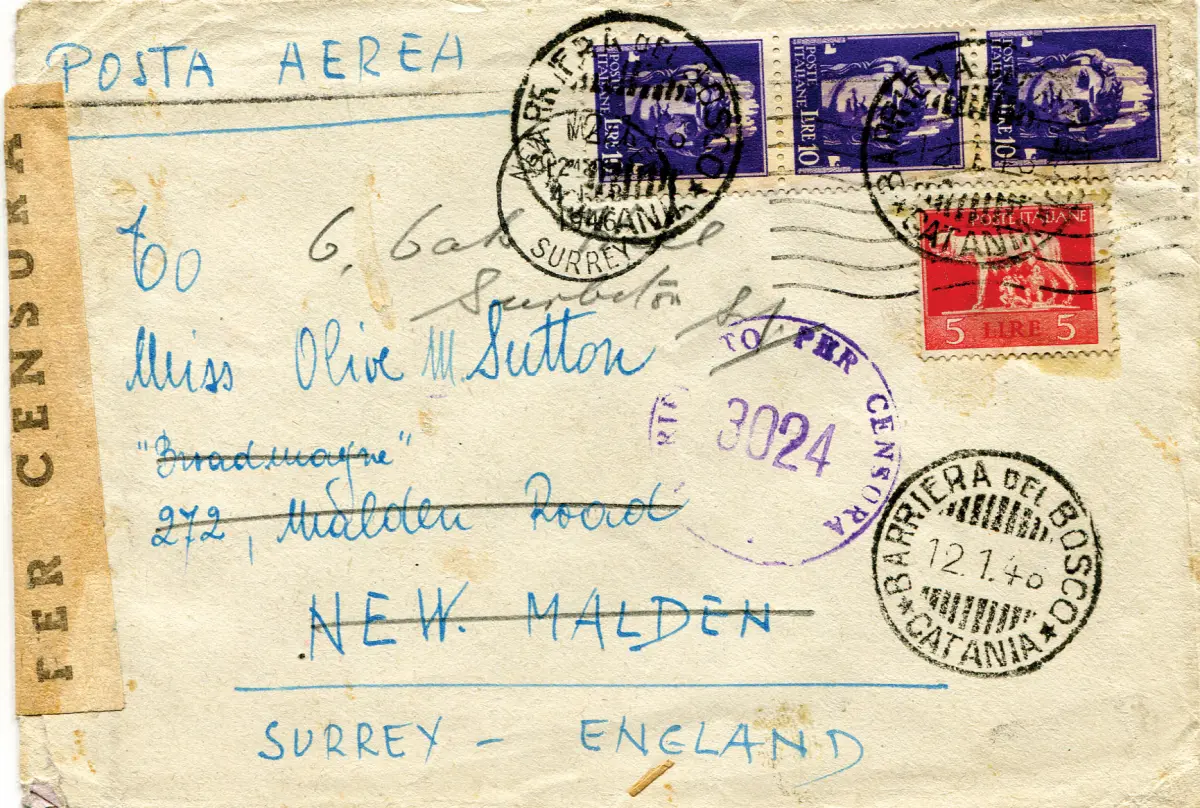 POSTA AEREA
POSTE ITALIANE
LIRE 10
POSTE ITALIANE
LIRE 10
POSTE ITALIANE
LIRE 10
BARRIERA DEL BOSCO
CATANIA
SURREY
BARRIERA
CATANIA
POSTE ITALIANE
5 LIRE 5
To
6,
Surbiton
Miss Olive M. Sutton
TO PER CENSURA
3024
"Broadmayne"
272, Malden Road
NEW. MALDEN
SURREY - ENGLAND
BARRIERA DEL BOSCO
12.1.46
CATANIA
PER CENSURA